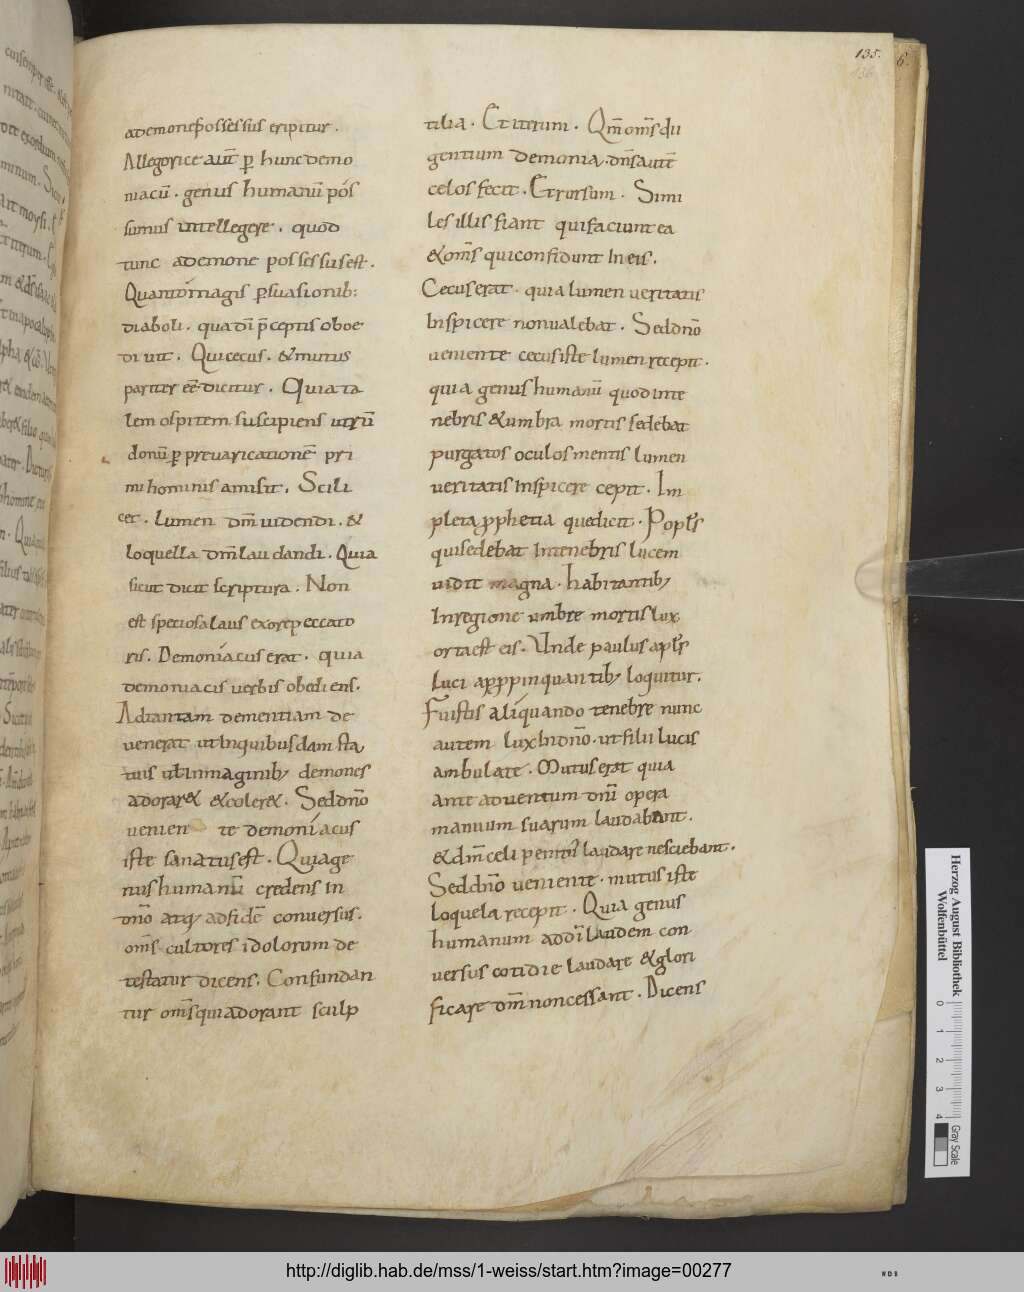 135.
136
6.
ademone possessus eripitur.
Allegorice aut̄ p̱ hunc demo
niacū. genus humanū pos
sumus intellegere. quod
tunc ademone possessus est.
Quantó magis p̱suasionib:
diaboli. qua dī p̄ceptis oboe
diuit. Qui cecus. & mutus
pariter eē dicitur. Quia ta
lem ospitem suscipiens utrū
donū p̱ preuaricationē pri
mi hominis amisit. Scili
cet. Lumen dm̄ uidendi. &
loquella dm̄ lau dandi. Quia
sicut dicit scriptura. Non
est speciosa laus exore peccato
ris. Demoníacus erat. quia
demoniacis uerbis obediens.
Adtantam dementiam de
uenerat ut inquibusdam sta
tuis ut̄ inmaginib; demones
adorar& & coler&. Sed dn̄o
uenien te demoníacus
iste sanatus est. Quia ge
nus humanū credens in
dn̄o atq; adfidē conuersus.
om̄s cultores idolorum de
testatur dicens. Confundan
tur om̄s qui adorant sculp
tilia. Et iterum. Qm̄ om̄s dii
gentium demonia. dn̄s aut̄
celos fecit. Et rursum. Simi
les illis fiant qui faciunt ea
& om̄s qui confidunt in eis.
Cecus erat. quia lumen ueritatis
Inspicere non ualebat. Sed dn̄o
ueniente cecus iste lumen recepit.
quia genus humanū quod inte
nebris & umbra mortis sedebat
purgatos oculos mentis lumen
ueritatis Inspicere cepit. Im
pleta p̱phetia que dicit. Popl̄s
qui sedebat Intenebris lucem
uidit magna. habitantib;
Inregione umbre mortis lux
orta est eis. Unde paulus apl̄s
Luci ap̱p̱pinquantib; loquitur.
Fuistis alíquando tenebre nunc
autem lux In dn̄o. ut filii lucis
ambulate. Mutus erat quia
ante aduentum dn̄i opera
manuum suarum laudabant.
& dm̄ celi penitus laudare nesciebant.
Sed dn̄o ueniente. mutus iste
loquela recepit. Quia genus
humanum ad dī laudem con
uersus cotidie laudare & glori
ficare dm̄ non cessant. Dicens
Herzog August Bibliothek
Wolfenbüttel
0 1 2 3 4
Gray Scale
http://diglib.hab.de/mss/1-weiss/start.htm?image=00277